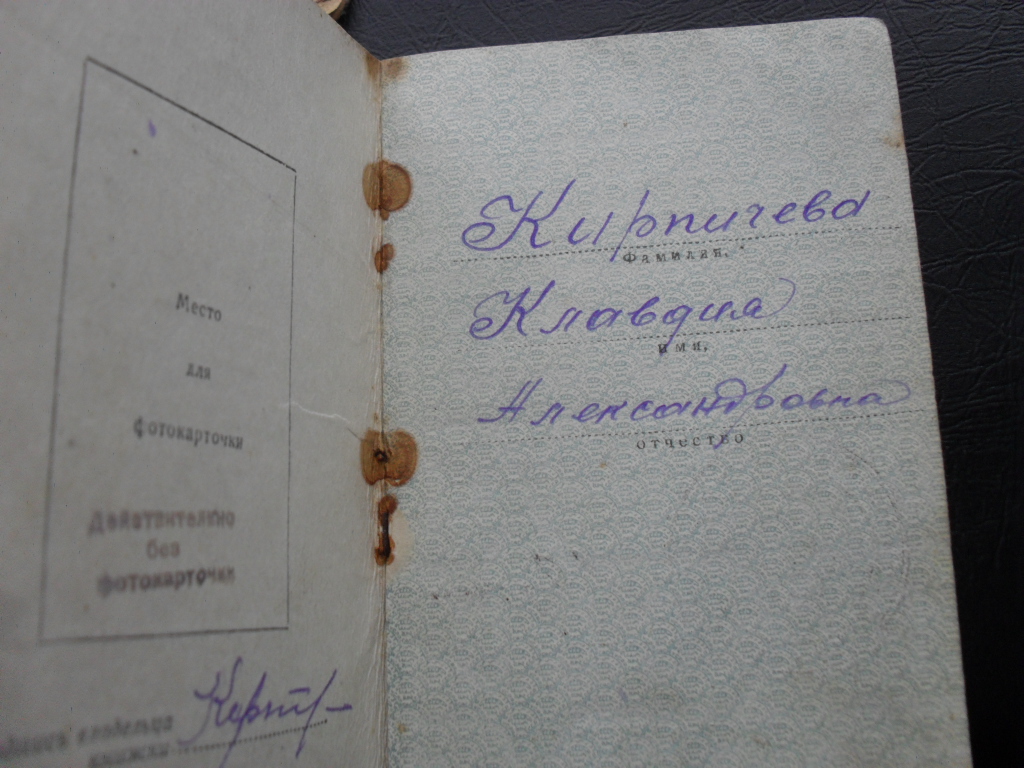 Место
для
фотокарточки
Действительно
без
фотокарточки
владельца
книжки
Кирпичева
Фамилия,
Клавдия
имя,
Александровна
отчество